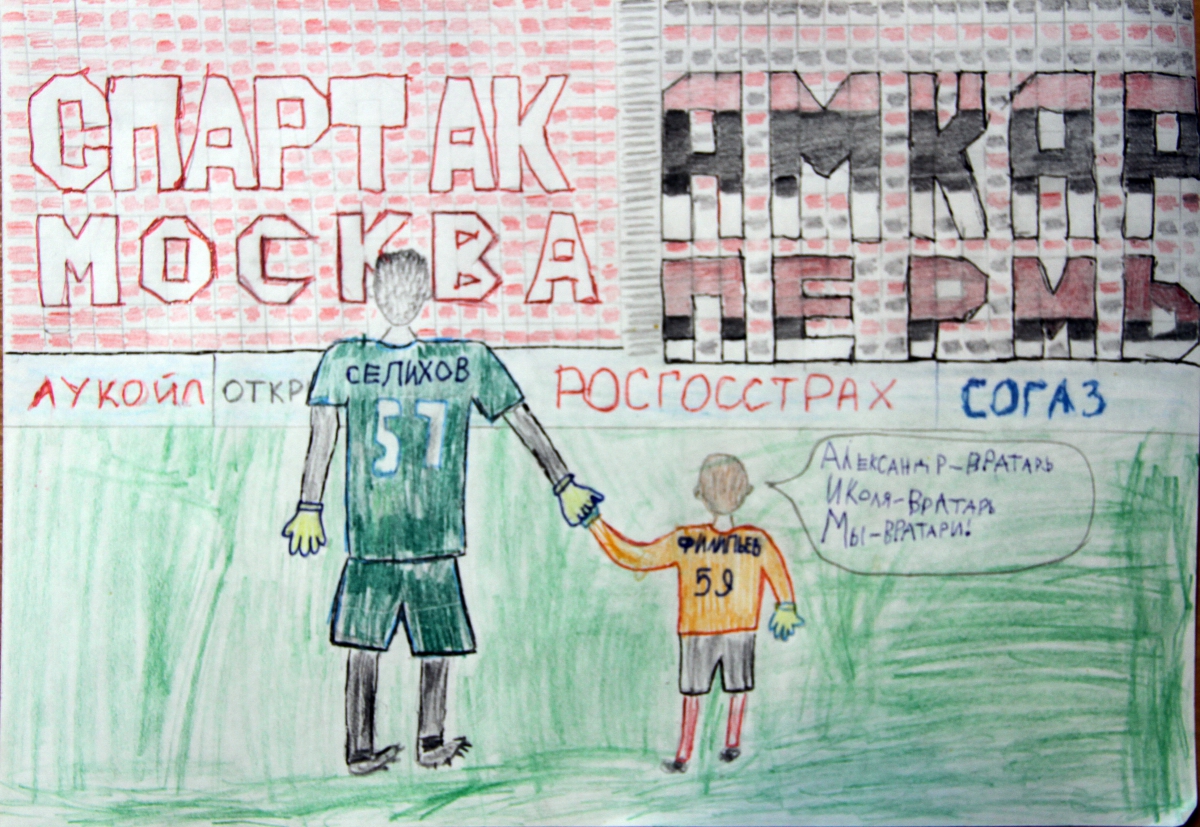 СПАРТАК
МОСКВА
АМКАР
ПЕРМЬ
ЛУКОЙЛ
ОТКР
РОСГОССТРАХ
СОГАЗ
СЕЛИХОВ
57
ФИЛИПЬЕВ
59
АЛЕКСАНДР-ВРАТАРЬ
И КОЛЯ-ВРАТАРЬ
МЫ-ВРАТАРИ!